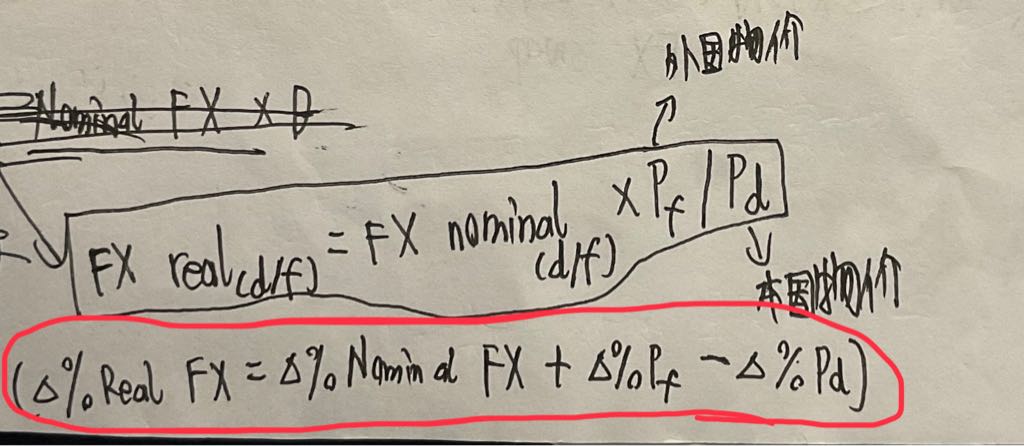 外国物价
Nominal FX x D
FX real(d/f) = FX nominal (d/f) x Pf / Pd
本国物价
(Δ% Real FX = Δ% Nominal FX + Δ% Pf - Δ% Pd)